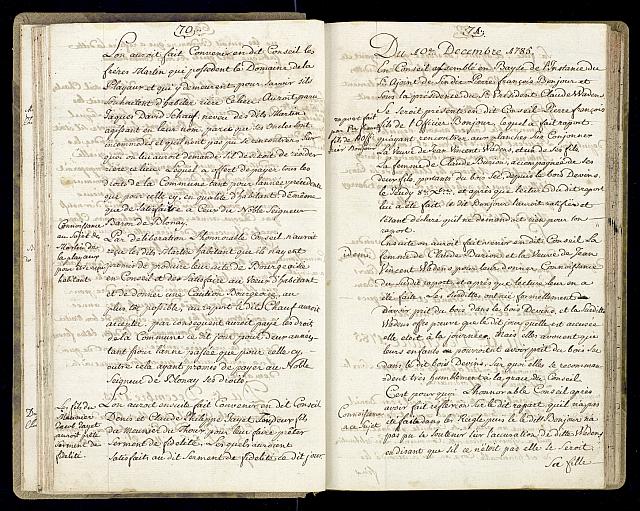 70.
L'on auroit fait Convenir en dit Conseil les
frères Martin que possedent le Domaine de la
Playaux et qui y demeurent pour savoir s'ils
Souhaitent d'habiter rière Ce lieu. Auroit paru
Jaques David Chauf neveu des dits Martin
agissant en leur nom parce que ses Oncles sont
incommodés et qu'il n'ont pas pu se rencontrer. Sur
quoi on lui auroit demandé s'il devient de résider
rière ce lieu. Lequel a offert de payer tous les
droits de la Commune tant pour l'année précédente
que pour celle cy, en qualité d'habitant. De même
que de Satisfaire à Ceux du Noble Seigneur
Baron de Blonay.
Connoissance
au Sujet des
Martin de
la playaux
pour être reçu
habitant
Par deliberation l'honnorable Conseil, n'auroit
reçu les dits Martin habitant que ils n'ayent
promis de produire leur acte de Bourgeoisie
en Conseil et des Satisfaire au Vœux d'habitant
et de donner une Caution Bourgeois, au
plus tot possible, au raport le dit Chauf auroit
accepté. par consequent auroit payé les droits
de la Commune ce dit jour pour deux années
tant pour l'année passée que pour celle cy,
outre cela ayant promis de payer au Noble
Seigneur de Blonay ses droits.
Les fils du
Meunier
auroit prêté
Serment de
fidelité.
L'on auroit ensuite fait Convenir en dit Conseil
Denis et Claude Philippe fils
du Meunier pour leur faire prêter
Serment de fidelité. Lesquels auroient
Satisfait au dit Serment de fidelité ce dit jour
71.
Du 10e. Decembre 1785.
En Conseil assemblé en Bayse de l'instance du
Sr. Pierre François Bonjour, et
Sous la présidence du Sr. President Claude Wadens
raport fait
par Pre. françois
fils de l'off-
icier Bonjour
Se Seroit presenté en dit Conseil Pierre françois
fils de l'Officier Bonjour, lequel a fait raport
ayant rencontré aux planches
La Veuve de Jean Vincent Wadens, et un de ses fils.
La femme de Claude Bonjour accompagnée de ses
deux fils, portants du bois Sec, depuis le bois Devens,
le Jeudy 8e. Xbre. et après que lecture du dit raport
lui a été fait, le dit Bonjour l'auroit ratifié et
S'étant declaré qu'il ne demandoit rien pour son
raport.
idem
Ensuite on auroit fait venir en dit Conseil La
femme de Claude et la Veuve de Jean
Vincent Wadens pour leur donner Connoissance
du Susdit raport, et après que lecture leur en a
été faite. Les Susdittes ont nié formellement
d'avoir prit du bois dans le bois Devens, et la Susditte
Wadens offre preuve que le dit jour qu'elle est accusée
elle étoit à la journée. Mais elles avouent que
leurs enfants en pourroient avoir prit du bois Sec
dans le dit bois Devens, Sur quoi elles se recomman-
dent très humblement à la grace du Conseil.
Connoissance
à ce Sujet
C'est pourquoi l'honnorable Conseil après
avoir fait reflexion Sur le dit raport qui n'a pas
été fait dans les règles, puis que le dit Bonjour n'a
pas pu le Soutenir Sur l'accusation de ditte Wadens
en disant que si ce n'étoit pas elle ce Seroit
Sa fille